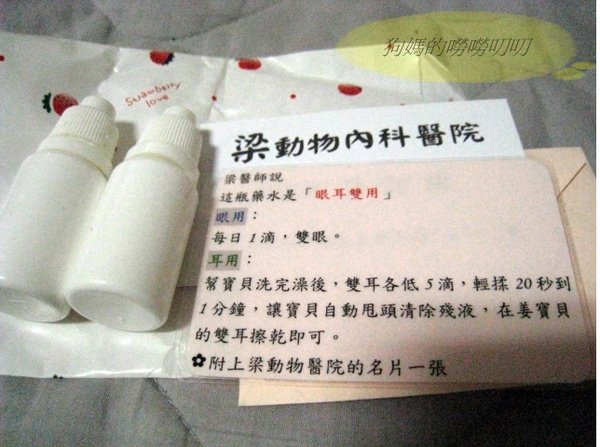 狗媽的嘮嘮叨叨
Strawberry
love
梁動物內科醫院
梁醫師說
這瓶藥水是「眼耳雙用」
眼用：
每日 1 滴，雙眼。
耳用：
幫寶貝洗完澡後，雙耳各低 5 滴，輕揉 20 秒到
1 分鐘，讓寶貝自動甩頭清除殘液，在姜寶貝
的雙耳擦乾即可。
✿附上梁動物醫院的名片一張